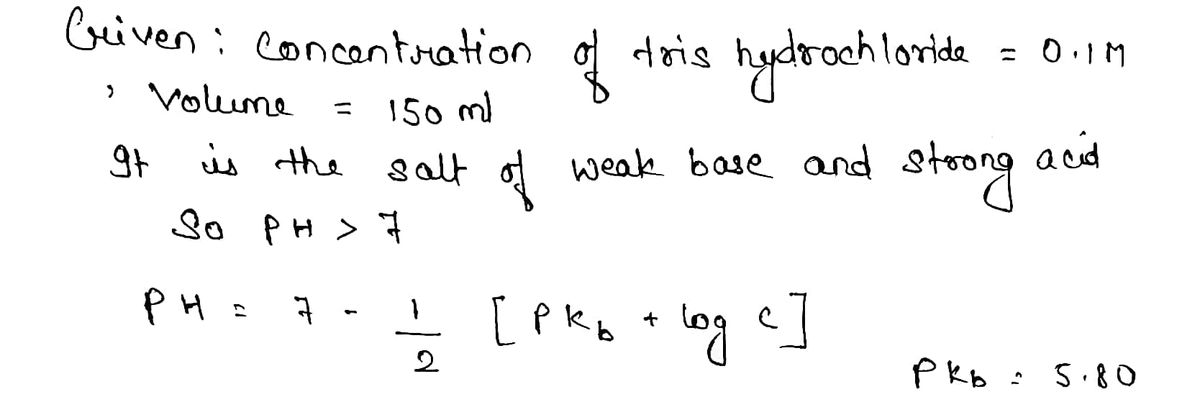 Given : Concentration of tris hydrochloride = 0.1M
, Volume = 150 ml
It is the salt of weak base and strong acid
So PH > 7
PH = 7 - 1/2 [ PKb + log c ]
PKb = 5.80